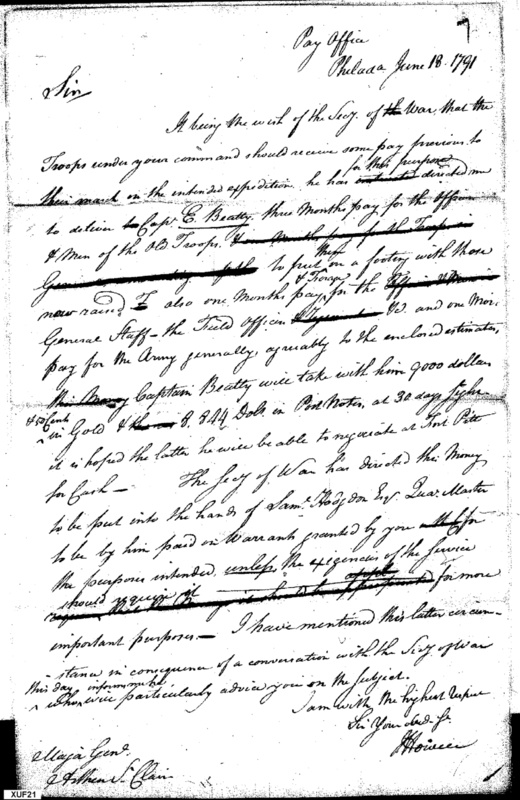 7
Pay Office
Philada June 18. 1791
Sir
It being the wish of the Secy. of the War, that the
Troops under your command should receive some pay previous to
for this purpose
their march on the intended expedition he has directed me
to deliver to Capt. E. Beatty, three Months pay for the Officers
& Men of the Old Troops.
to put them on a footing with those
& Troops
now raised also one Months pay for the
General Staff – the Field Officers &c. and one Mos.
pay for the Army generally, agreeably to the enclosed estimates,
Captain Beatty will take with him 9000 dollars
& 50 Cents
in Gold & 8.844 Dols. in Post Notes, at 30 days Sight
it is hoped the latter he will be able to negociate at Fort Pitt
for Cash — The Secy of War has directed this Money
to be put into the hands of Saml. Hodgdon Esqr. Quar. Master
to be by him paid on Warrants granted by you for
the purposes intended, unless the exigencies of the Service
should require it for more
important purposes — I have mentioned this latter circum-
stance in consequence of a conversation with the Secy of War
this day informs me he
who will particularly advise you on the subject.
I am with the highest respect
Sir Your
J Howell
Major Genl.
Arthur St. Clair
XUF21